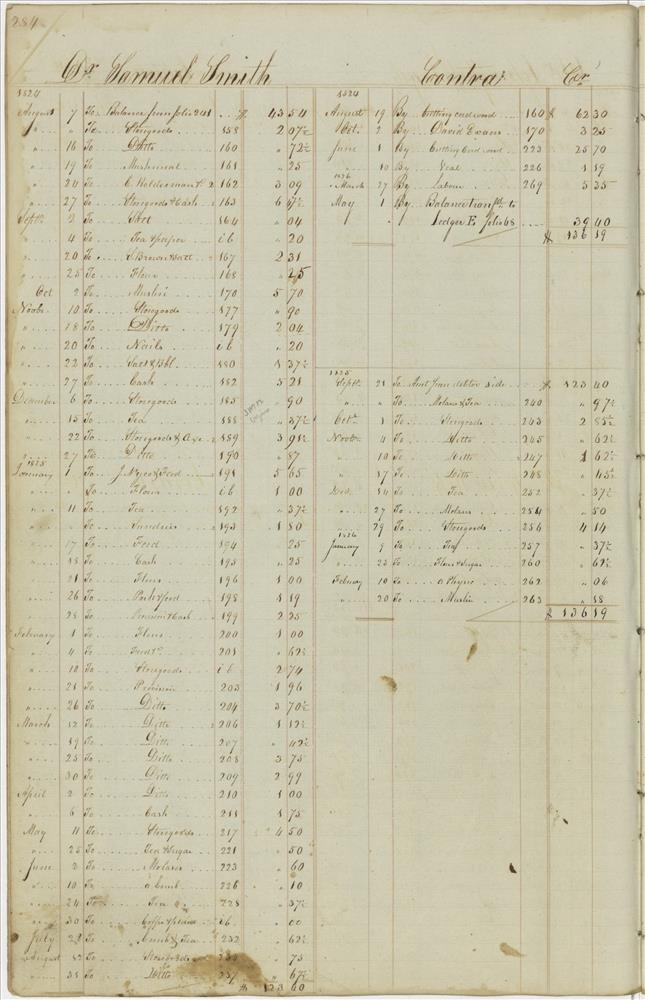 284
Dr Samuel Smith
1824
August 7 To Balance from folio 241 $ 43 54
" " To Storegoods 158 2 07½
" 16 To Ditto 160 " 72½
" 19 To 161 " 25
" 24 To C. Walderman 162 3 09
" 27 To Storegoods & Cash 163 6 67½
Septr 2 To Shot 164 " 04
" 4 To Tea & pepper ib " 20
" 20 To 167 2 31
" 25 To Flour 168 " 25
Oct 2 To Muslin 170 5 70
Novbr 10 To Storegoods 177 " 90
" 18 To Ditto 179 2 04
" 20 To Nails ib " 20
" 22 To Salt & Bbl 180 1 37½
" 27 To Cash 182 5 21
December 6 To Storegoods 185 " 90
" 15 To Tea 188 " 37½
" 22 To Storegoods & Axe 189 3 91½
" 27 To Ditto 190 " 87
1825
January 1 To & Feed 191 5 65
" " To Flour ib 1 00
" 11 To Tea 192 " 37½
" " To Sundries 193 1 80
" 17 To Feed 194 " 25
" 18 To Cash 195 " 25
" 21 To Flour 196 1 00
" 26 To Pork & feed 198 1 19
" 28 To Provision & Cash 199 2 25
February 1 To Flour 200 1 00
" 4 To 201 " 62½
" 10 To Storegoods ib 2 74
" 21 To Provision 203 1 96
" 26 To Ditto 204 3 70½
March 12 To Ditto 206 1 12½
" 19 To Ditto 207 " 42½
" 25 To Ditto 208 3 75
" 30 To Ditto 209 2 99
April 2 To Ditto 210 1 00
" 6 To Cash 211 1 75
May 11 To Storegoods 217 4 50
" 25 To Tea & Sugar 221 " 50
June 2 To Molasses 223 " 60
" 10 To a Comb 226 " 10
" 24 To Tea 228 " 37½
" 30 To ib " 00
July 28 To Comb & Tea 232 " 62½
August To Storegoods " 75
" To Ditto 237 " 67½
$ 123 40
Contra Cr
1824
August 19 By Cutting cord wood 160 $ 62 30
Oct. 2 By David Evans 170 3 25
June 1 By Cutting Cord wood 223 25 70
" 10 By Veal 226 1 19
1826
March 27 By Labour 269 5 35
May 1 By Balance transfd to
Ledger E folio 68 39 40
$ 136 19
1825
Septr 21 To Amt from debtor side $ 123 40
" " To Molasses & Tea 240 " 97½
Octr 1 To Storegoods 243 2 83½
Novbr 4 To Ditto 245 " 62½
" 10 To Ditto 247 1 62½
" 17 To Ditto 248 " 45½
Dec. 14 To Tea 252 " 37½
" 27 To Molasses 254 " 50
" 29 To Storegoods 256 4 14
1826
January 9 To Tea 257 " 37½
" 23 To Flour & Sugar 260 " 62½
Febuay 10 To a Physic 262 " 06
" 20 To Muslin 263 " 18
$ 136 19